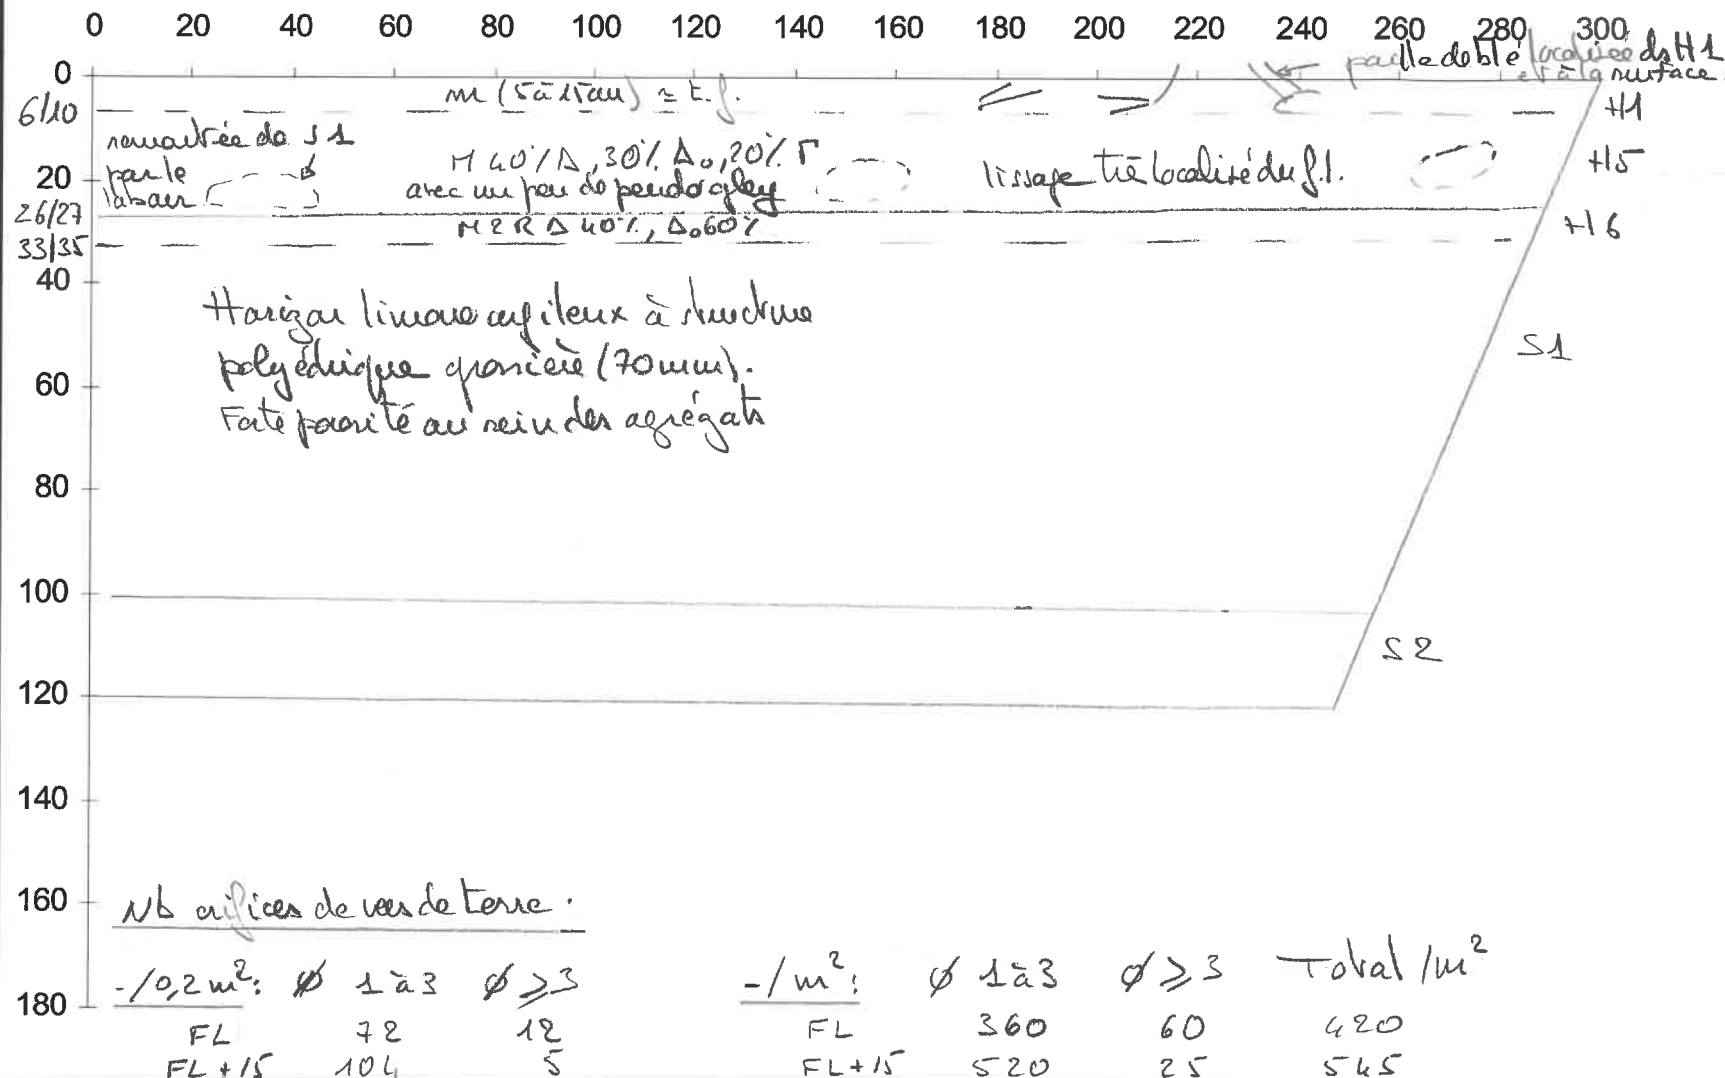 0 20 40 60 80 100 120 140 160 180 200 220 240 260 280 300
paille de blé localisée ds H1
et à la surface
0
m (5 à 15 cm) = t. f.
H1
6/10
remontée de S1
par le
labour
M 40% Δ, 30% Δ0, 20% Γ
avec un peu de pseudogley
lissage très localisé du f.l.
H5
20
26/27
M 2 R Δ 40%, Δ0 60%
H6
33/35
40
Horizon limono argileux à structure
polyédrique grossière (70mm).
Forte porosité au sein des agrégats
S1
60
80
100
S2
120
140
160
Nb orifices de vers de terre.
180
-/0,2 m²: Ø 1 à 3 Ø ≥ 3 -/m²: Ø 1 à 3 Ø ≥ 3 Total /m²
FL 72 12 FL 360 60 420
FL+15 104 5 FL+15 520 25 545